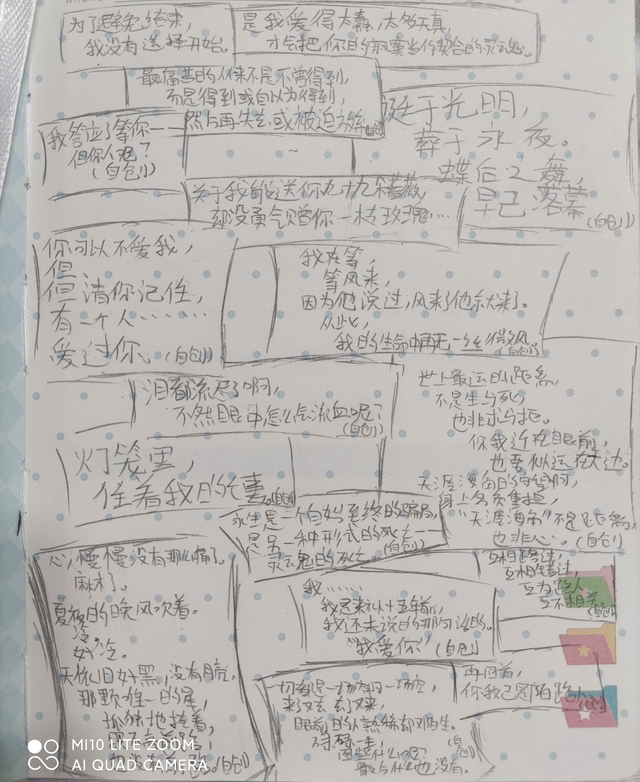 为了避免结束，
我没有选择开始。
是我爱得太蠢，太多天真，
才会把你的敷衍当作契合的灵魂。
最痛苦的从来不是不曾得到，
而是得到或自以为得到，
然后再失去或被迫放弃(自创)
诞于光明，
葬于永夜。
蝶后之舞，
早已落幕
(自创)
我答应了等你——
但你人呢？
(自创)
关于我能送你九十九朵蔷薇
却没勇气赠你一枝玫瑰…
你可以不爱我，
但，
但请你记住，
有一个人……
爱过你、(自创)
我在等，
等风来，
因为他说过，风来了他就来了。
从此，
我的生命中再无一丝微风
(自创)
泪都流尽了啊，
不然眼中怎么会流血呢？
(自创)
世上最远的距离，
不是生与死，
也非求与拒。
你我近在眼前，
也要似远在天边。
天涯海角的
身上多负重担，
“天涯海角”不是距离，
也非心。(自创)
灯笼里，
住着我的
(自创)
永生是一个自始至终的骗局，
是另一种形式的死亡
灵魂的死亡
(自创)
心，慢慢没有那么痛了。
麻木了。
夏夜的晚风吹着。
冷，
好冷。
天依旧好黑，没有月亮，
那颗唯一的星，
孤独地挂着，
(自创)
我……
我是来从十五年前，
我还未说的那句话的。
“我爱你”(自创)
互相错过，
互相
互为路人
互不相关
(自创)
再回首，
你我已是陌路人
(自创)
一切都是一场梦一场空，
来又去，去又来，
眼前的人熟悉却陌生。
(自创)
最后什么也没有。
MI 10 LITE ZOOM
AI QUAD CAMERA